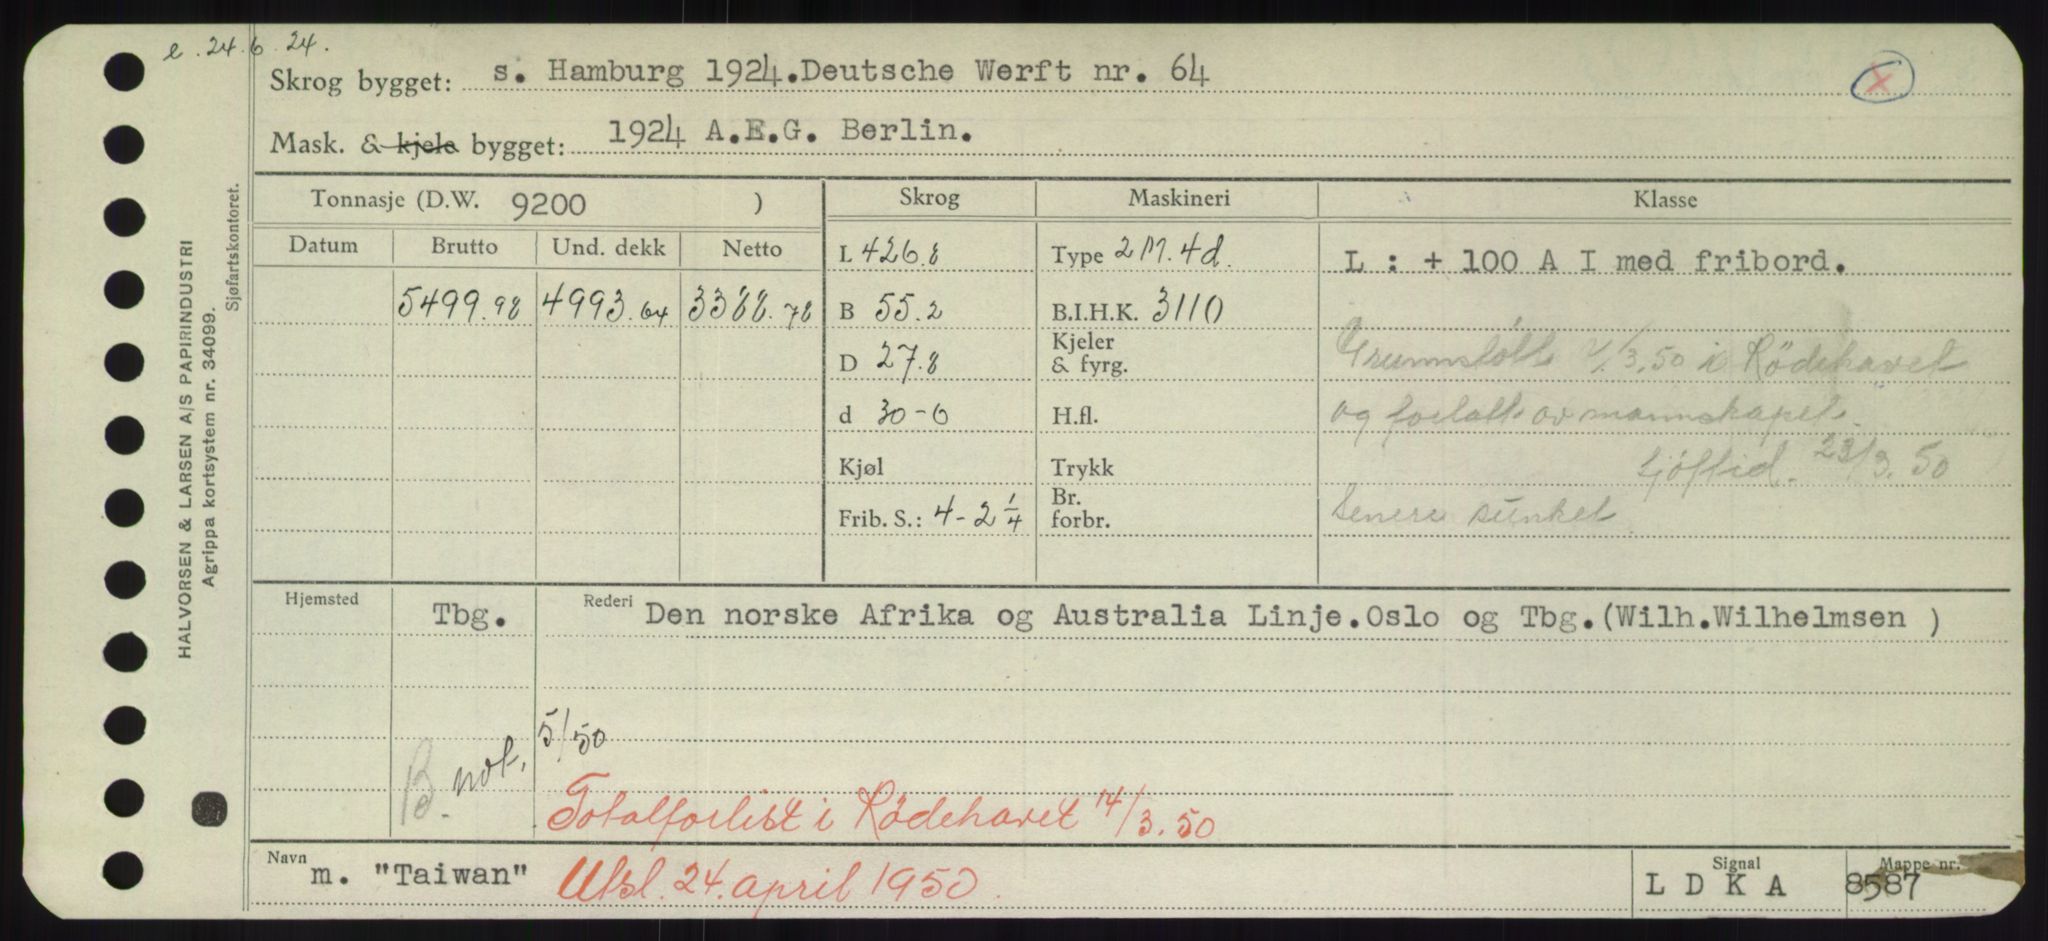 e. 24.6.24.
Skrog bygget: s. Hamburg 1924. Deutsche Werft nr. 64
x
Mask. & kjele bygget: 1924 A.E.G. Berlin.
HALVORSEN & LARSEN A/S PAPIRINDUSTRI
Agrippa kortsystem nr. 34099.
Sjøfartskontoret.
Tonnasje (D.W. 9200 ) Skrog Maskineri Klasse
Datum Brutto Und. dekk Netto
L 426.8 Type 2 M. 4d. L : + 100 A I med fribord.
5499.98 4993.64 3388.78 B 55.2 B.I.H.K. 3110
D 27.8 Kjeler & fyrg. Grunnstött /3.50 i Rödehavet
d 30-6 H.fl. og forlatt av mannskapet.
Kjøl Trykk Sjöftid. 23/3.50
Frib. S.: 4-2 1/4 Br. forbr. Senere sunket.
Hjemsted Tbg. Rederi Den norske Afrika og Australia Linje. Oslo og Tbg. (Wilh. Wilhelmsen )
B. not. 5/50
Totalforlist i Rödehavet 14/3.50
Navn m. "Taiwan" Utsl. 24. april 1950. Signal L D K A Mappe nr. 8587